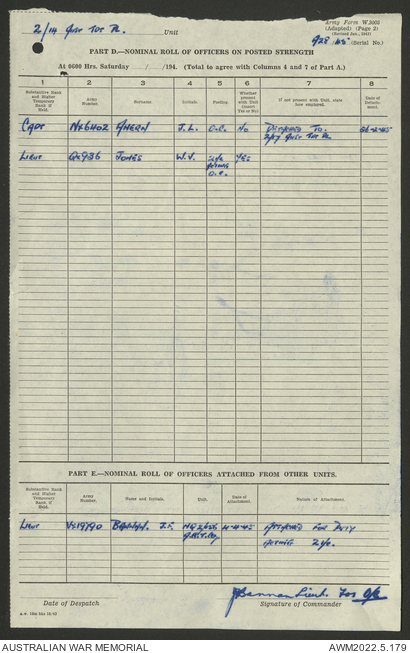 Army Form W.3008
2/14 Unit (Adapted) (Page 2)
(Revised Jan., 1943)
(Serial No.)
PART D.—NOMINAL ROLL OF OFFICERS ON POSTED STRENGTH
At 0600 Hrs. Saturday / /194. (Total to agree with Columns 4 and 7 of Part A.)
1 2 3 4 5 6 7 8
Substantive Rank and Higher Temporary Rank if Held. Army Number. Surname. Initials. Posting. Whether present with Unit (Insert Yes or No) If not present with Unit, state how employed. Date of Detachment.
CAPT NX6402 AHERN J.L. O.C. NO DETACHED TO
2/17
LIEUT JONES W.V. YES
O.C.
PART E.—NOMINAL ROLL OF OFFICERS ATTACHED FROM OTHER UNITS.
Substantive Rank and Higher Temporary Rank if Held. Army Number. Name and Initials. Unit. Date of Attachment. Nature of Attachment.
LIEUT J.F. ATTACHED FOR DUTY
ACTING
Lieut. For
Date of Despatch Signature of Commander
AUSTRALIAN WAR MEMORIAL AWM2022.5.179